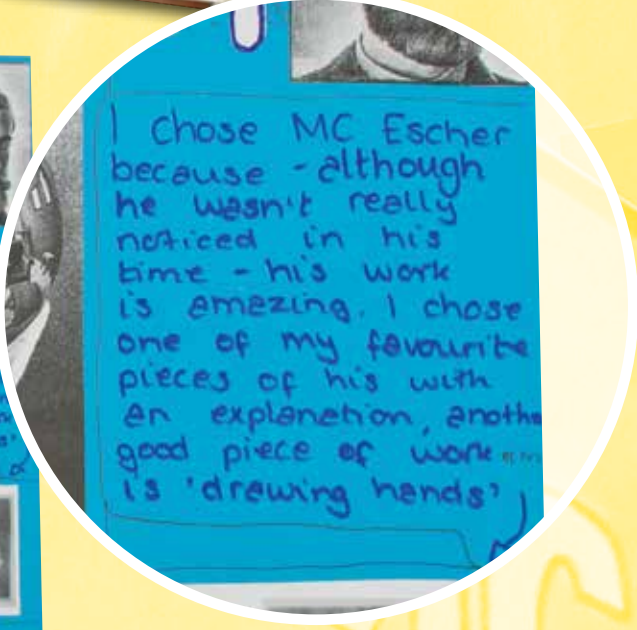 I chose MC Escher
because - although
he wasn't really
noticed in his
time - his work
is amazing. I chose
one of my favourite
pieces of his with
an explanation, anothe
good piece of work
is 'drawing hands'